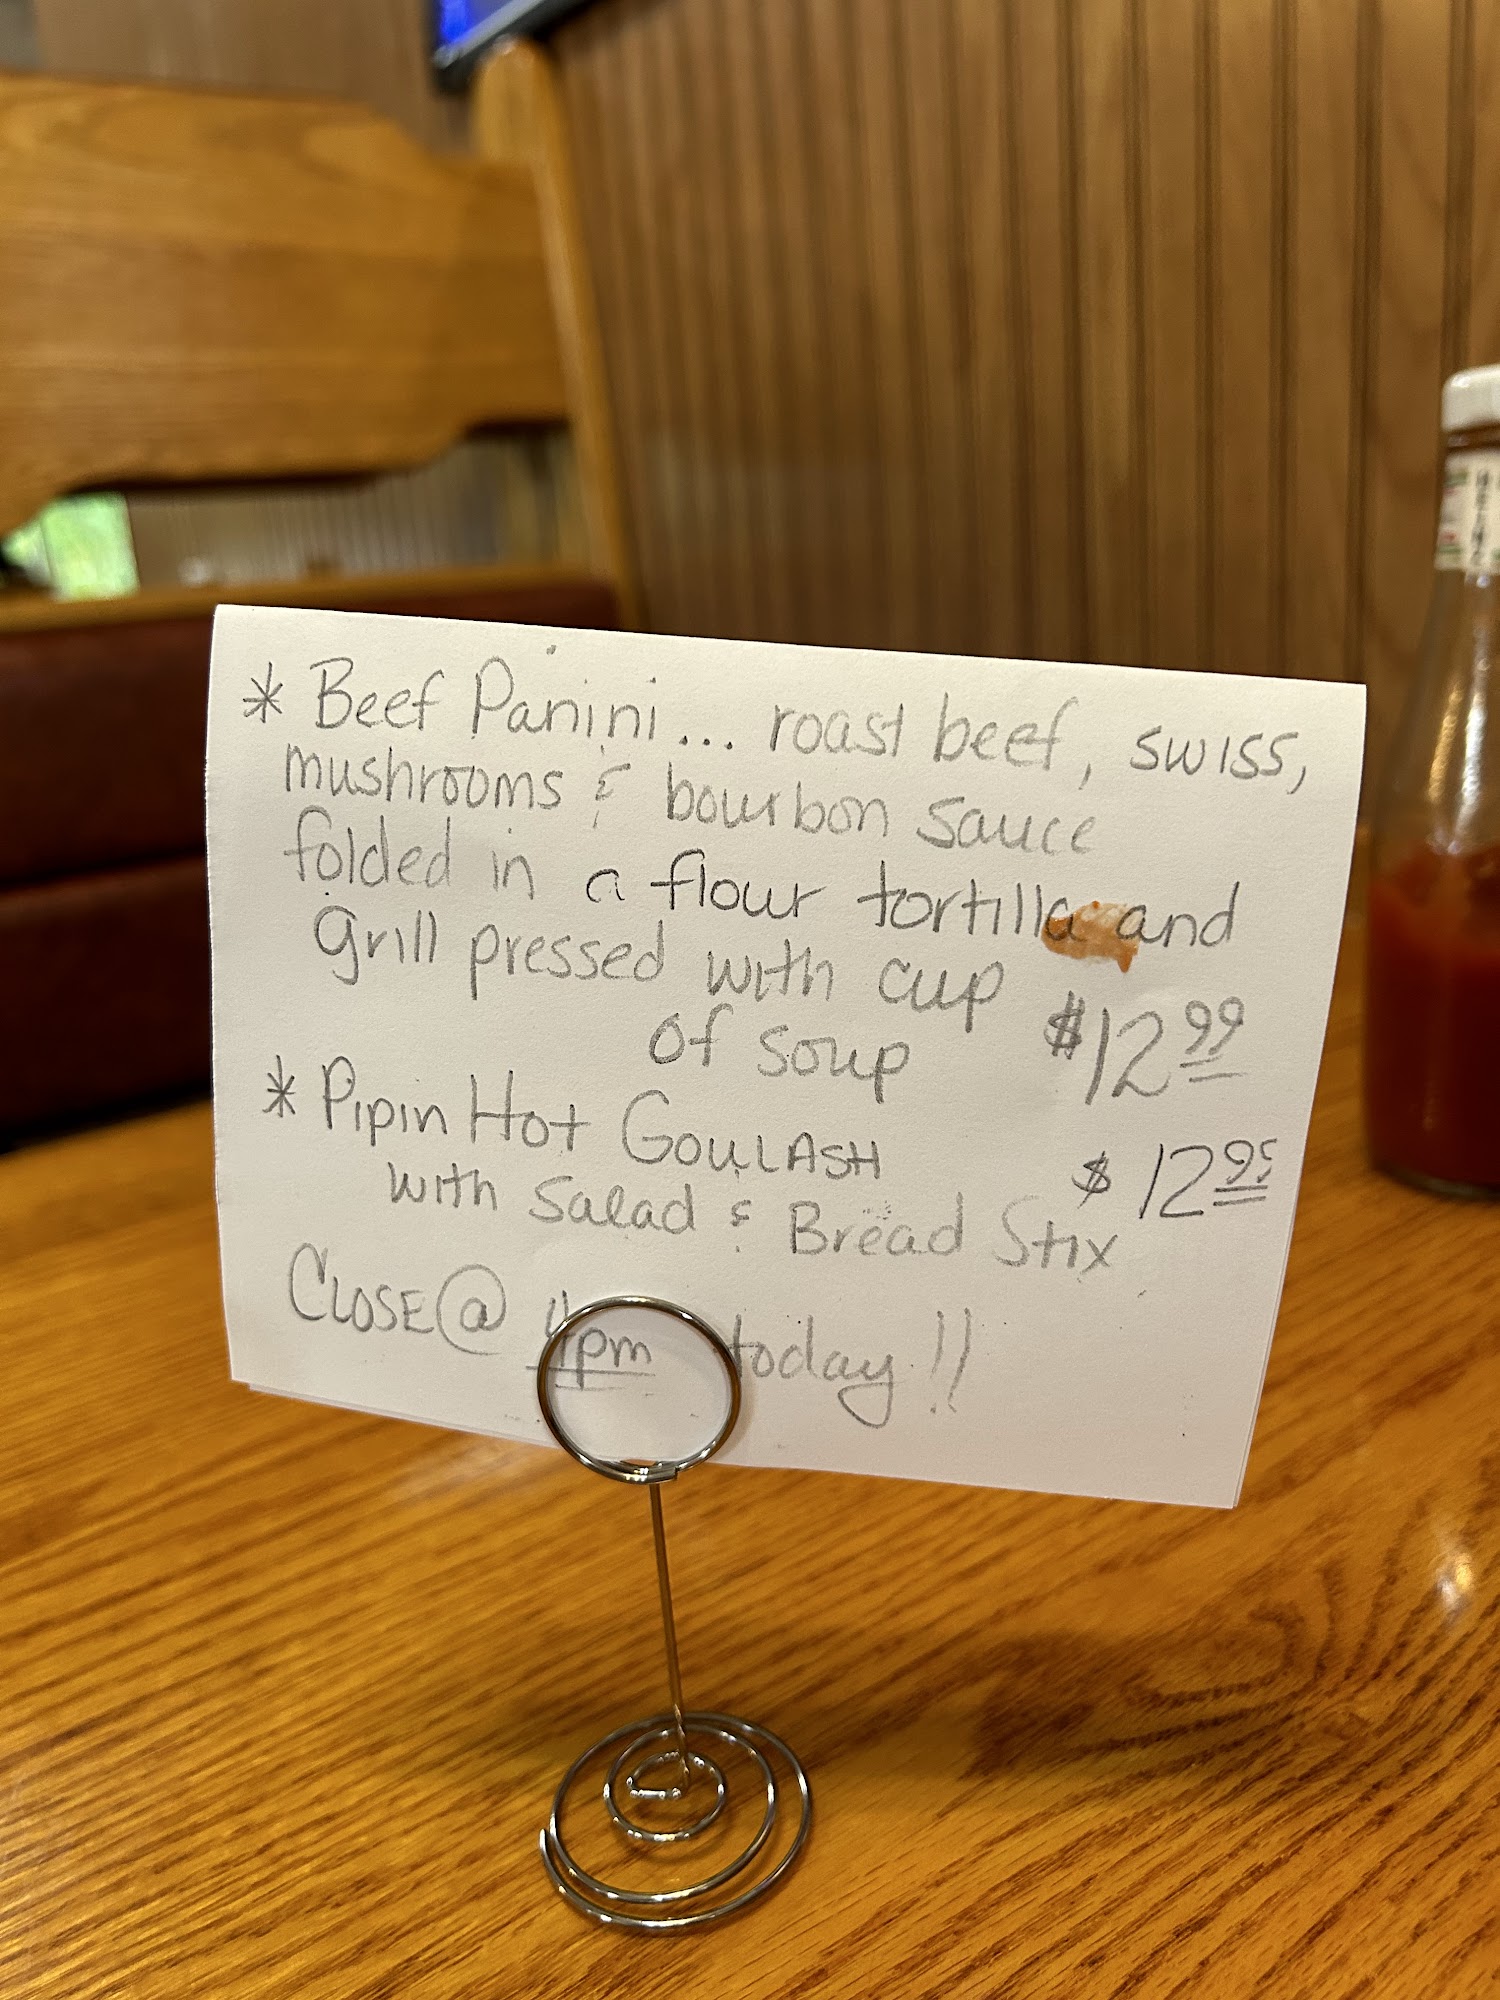 * Beef Panini... roast beef, swiss,
mushrooms & bourbon sauce
folded in a flour tortilla and
grill pressed with cup
of soup $12.99
* Pipin Hot GOULASH $12.95
with Salad & Bread Stix
CLOSE @ 4pm today!!